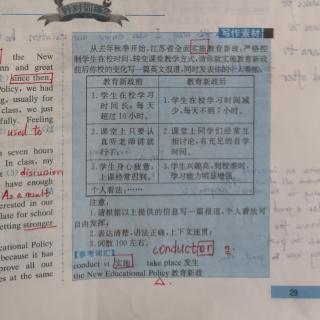 针对训练
写作素材
the New
nn and great
since then,
Policy, we had
g, usually for
class, we just
fully. Feeling
used to
seven hours
In class, my
(3) discussion
have enough
As a result
terested in our
late for school
etting stronger
ucational Policy
because it has
prove all our
es at the same
从去年秋季开始,江苏省全面实施教育新政,严格控
制学生在校时间,转变课堂教学方式,请你就实施教育新
政前后你校的变化写一篇英文报道,同时发表你的个人看法。
教育新政前 教育新政后
1.学生在校学习时间长,每天超过10小时。
1.学生在校学习时间减少,每天不到7小时。
2.课堂上只要认真听老师讲就行了。
2.课堂上同学们经常互相讨论,有充足的自学时间。
3.学生身心疲惫,上课经常迟到。
3.学生兴趣高,到校准时,学习能力明显增强。
个人看法:……
注意:
1.请根据以上提供的信息写一篇报道,个人看法可
自由发挥;
2.表达清楚,语法正确,上下文连贯;
3.词数100左右。
conductor
【参考词汇】
conduct vt 实施 take place 发生
the New Educational Policy 教育新政
29